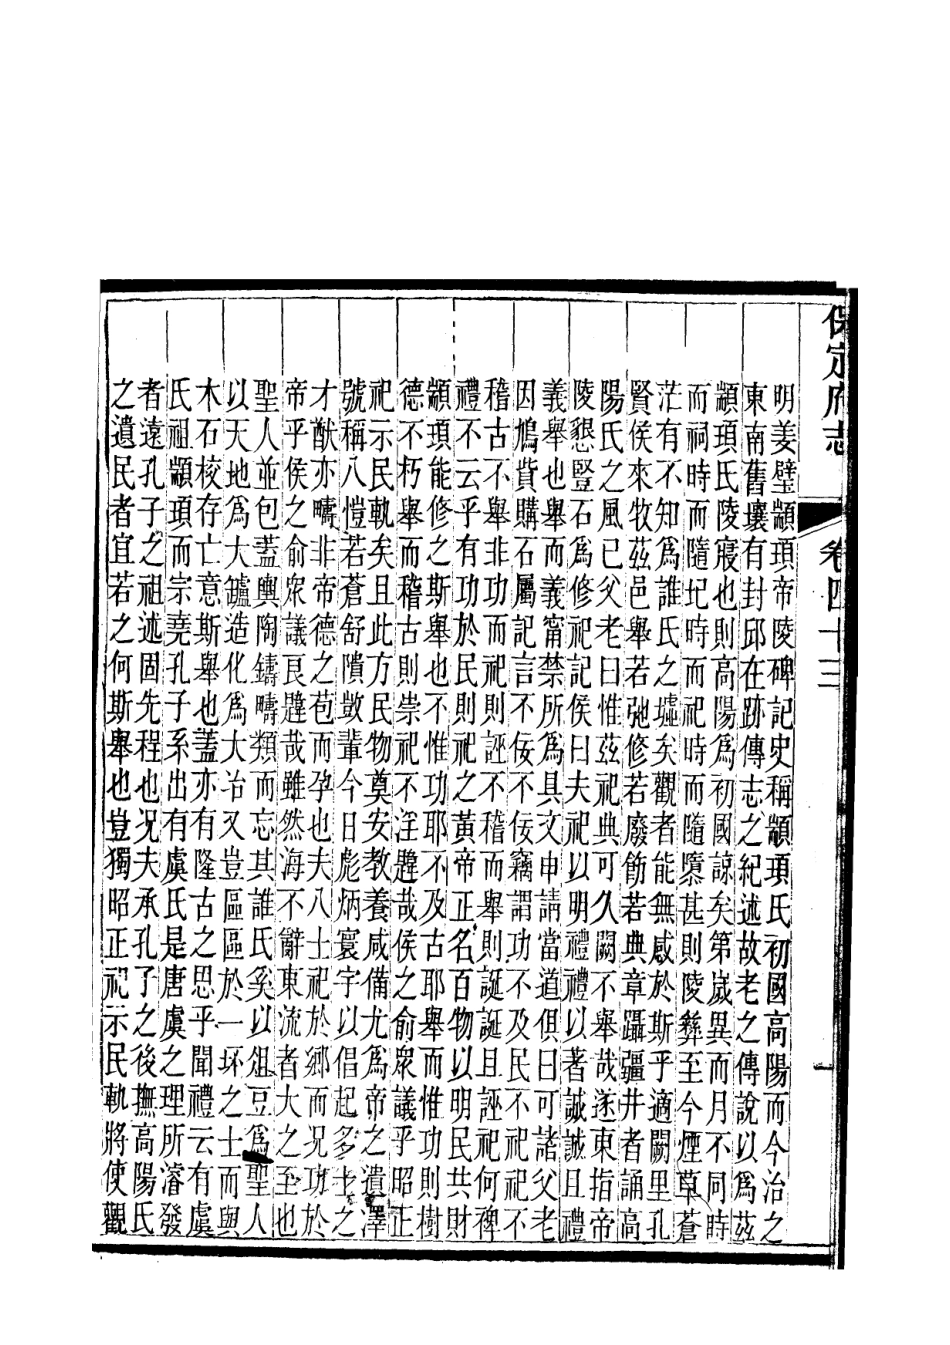 保定府志 卷四十三 一
明姜璧顓頊帝陵碑記史稱顓頊氏初國高陽而今治之
東南舊壤有封邱在跡傳志之紀述故老之傳說以為茲
顓頊氏陵寢也則高陽為初國諒矣第歲異而月不同時
而祠時而隨圮時而祀時而隨隳甚則陵彝至今煙草蒼
茫有不知為誰氏之墟矣觀者能無感於斯乎適闕里孔
賢侯來牧茲邑舉若弛修若廢飭若典章躡疆井者誦高
陽氏之風已父老曰惟茲祀典可久闕不舉哉遂東指帝
陵懇豎石為修祀記侯曰夫祀以明禮禮以著誠誠且禮
義舉也舉而義甯禁所為具文申請當道俱曰可諸父老
因鳩貲購石屬記言不佞不佞竊謂功不及民不祀祀不
稽古不舉非功而祀則誣不稽而舉則誕誕且誣祀何禆
禮不云乎有功於民則祀之黃帝正名百物以明民共財
顓頊能修之斯舉也不惟功耶不及古耶舉而惟功則樹
德不朽舉而稽古則崇祀不淫韙哉侯之俞眾議乎昭正
祀示民軌矣且此方民物奠安教養咸備尤為帝之遺澤
號稱八愷若蒼舒隤敳輩今日彪炳寰宇以倡起多士之
才猷亦疇非帝德之苞而孕也夫八士祀於鄉而況功於
帝乎侯之俞眾議良韙哉雖然海不辭東流者大之至也
聖人並包蓋輿陶鑄疇類而忘其誰氏奚以俎豆為聖人
以天地為大鑪造化為大冶又豈區區於一坏之土而與
木石校存亡意斯舉也蓋亦有隆古之思乎聞禮云有虞
氏祖顓頊而宗堯孔子系出有虞氏是唐虞之理所濬發
者遠孔子之祖述固先程也況夫承孔子之後撫高陽氏
之遺民者宜若之何斯舉也豈獨昭正祀示民軌將使觀